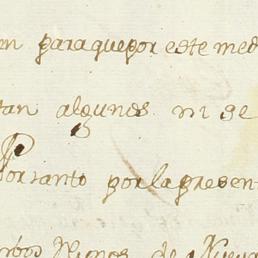 en para que por este med
tan algunos. ni se
Portanto por la presen
Nignos de Nueva